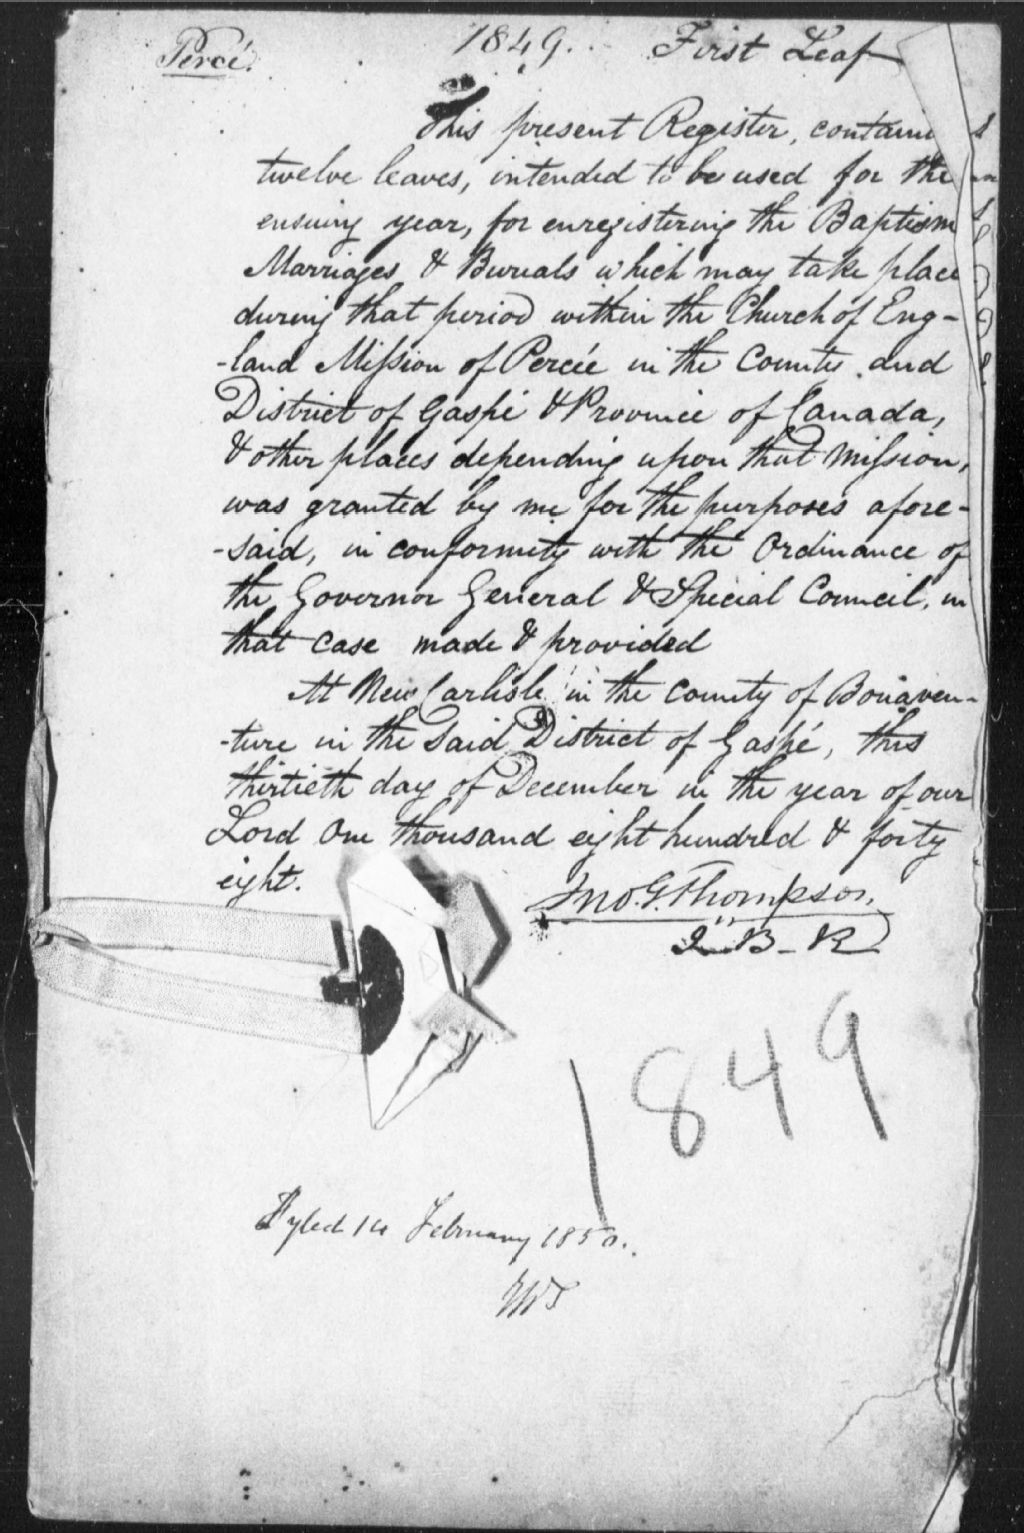 Percé.
1849. First Leaf
This present Register, containi
twelve leaves, intended to be used for the
ensuing year, for enregistering the Baptism
Marriages & Burials which may take place
during that period within the Church of Eng-
-land Mission of Percée in the County and
District of Gaspé & Province of Canada,
& other places depending upon that Mission,
was granted by me for the purposes afore-
-said, in conformity with the Ordinance of
the Governor General & Special Council, in
that case made & provided
At New Carlisle in the County of Bonaven-
-ture in the said District of Gaspé, this
thirtieth day of December in the year of our
Lord One thousand eight hundred & forty
eight.
Jno. G. Thompson.
Q. B. R
1849
Fyled 14 February 1850.